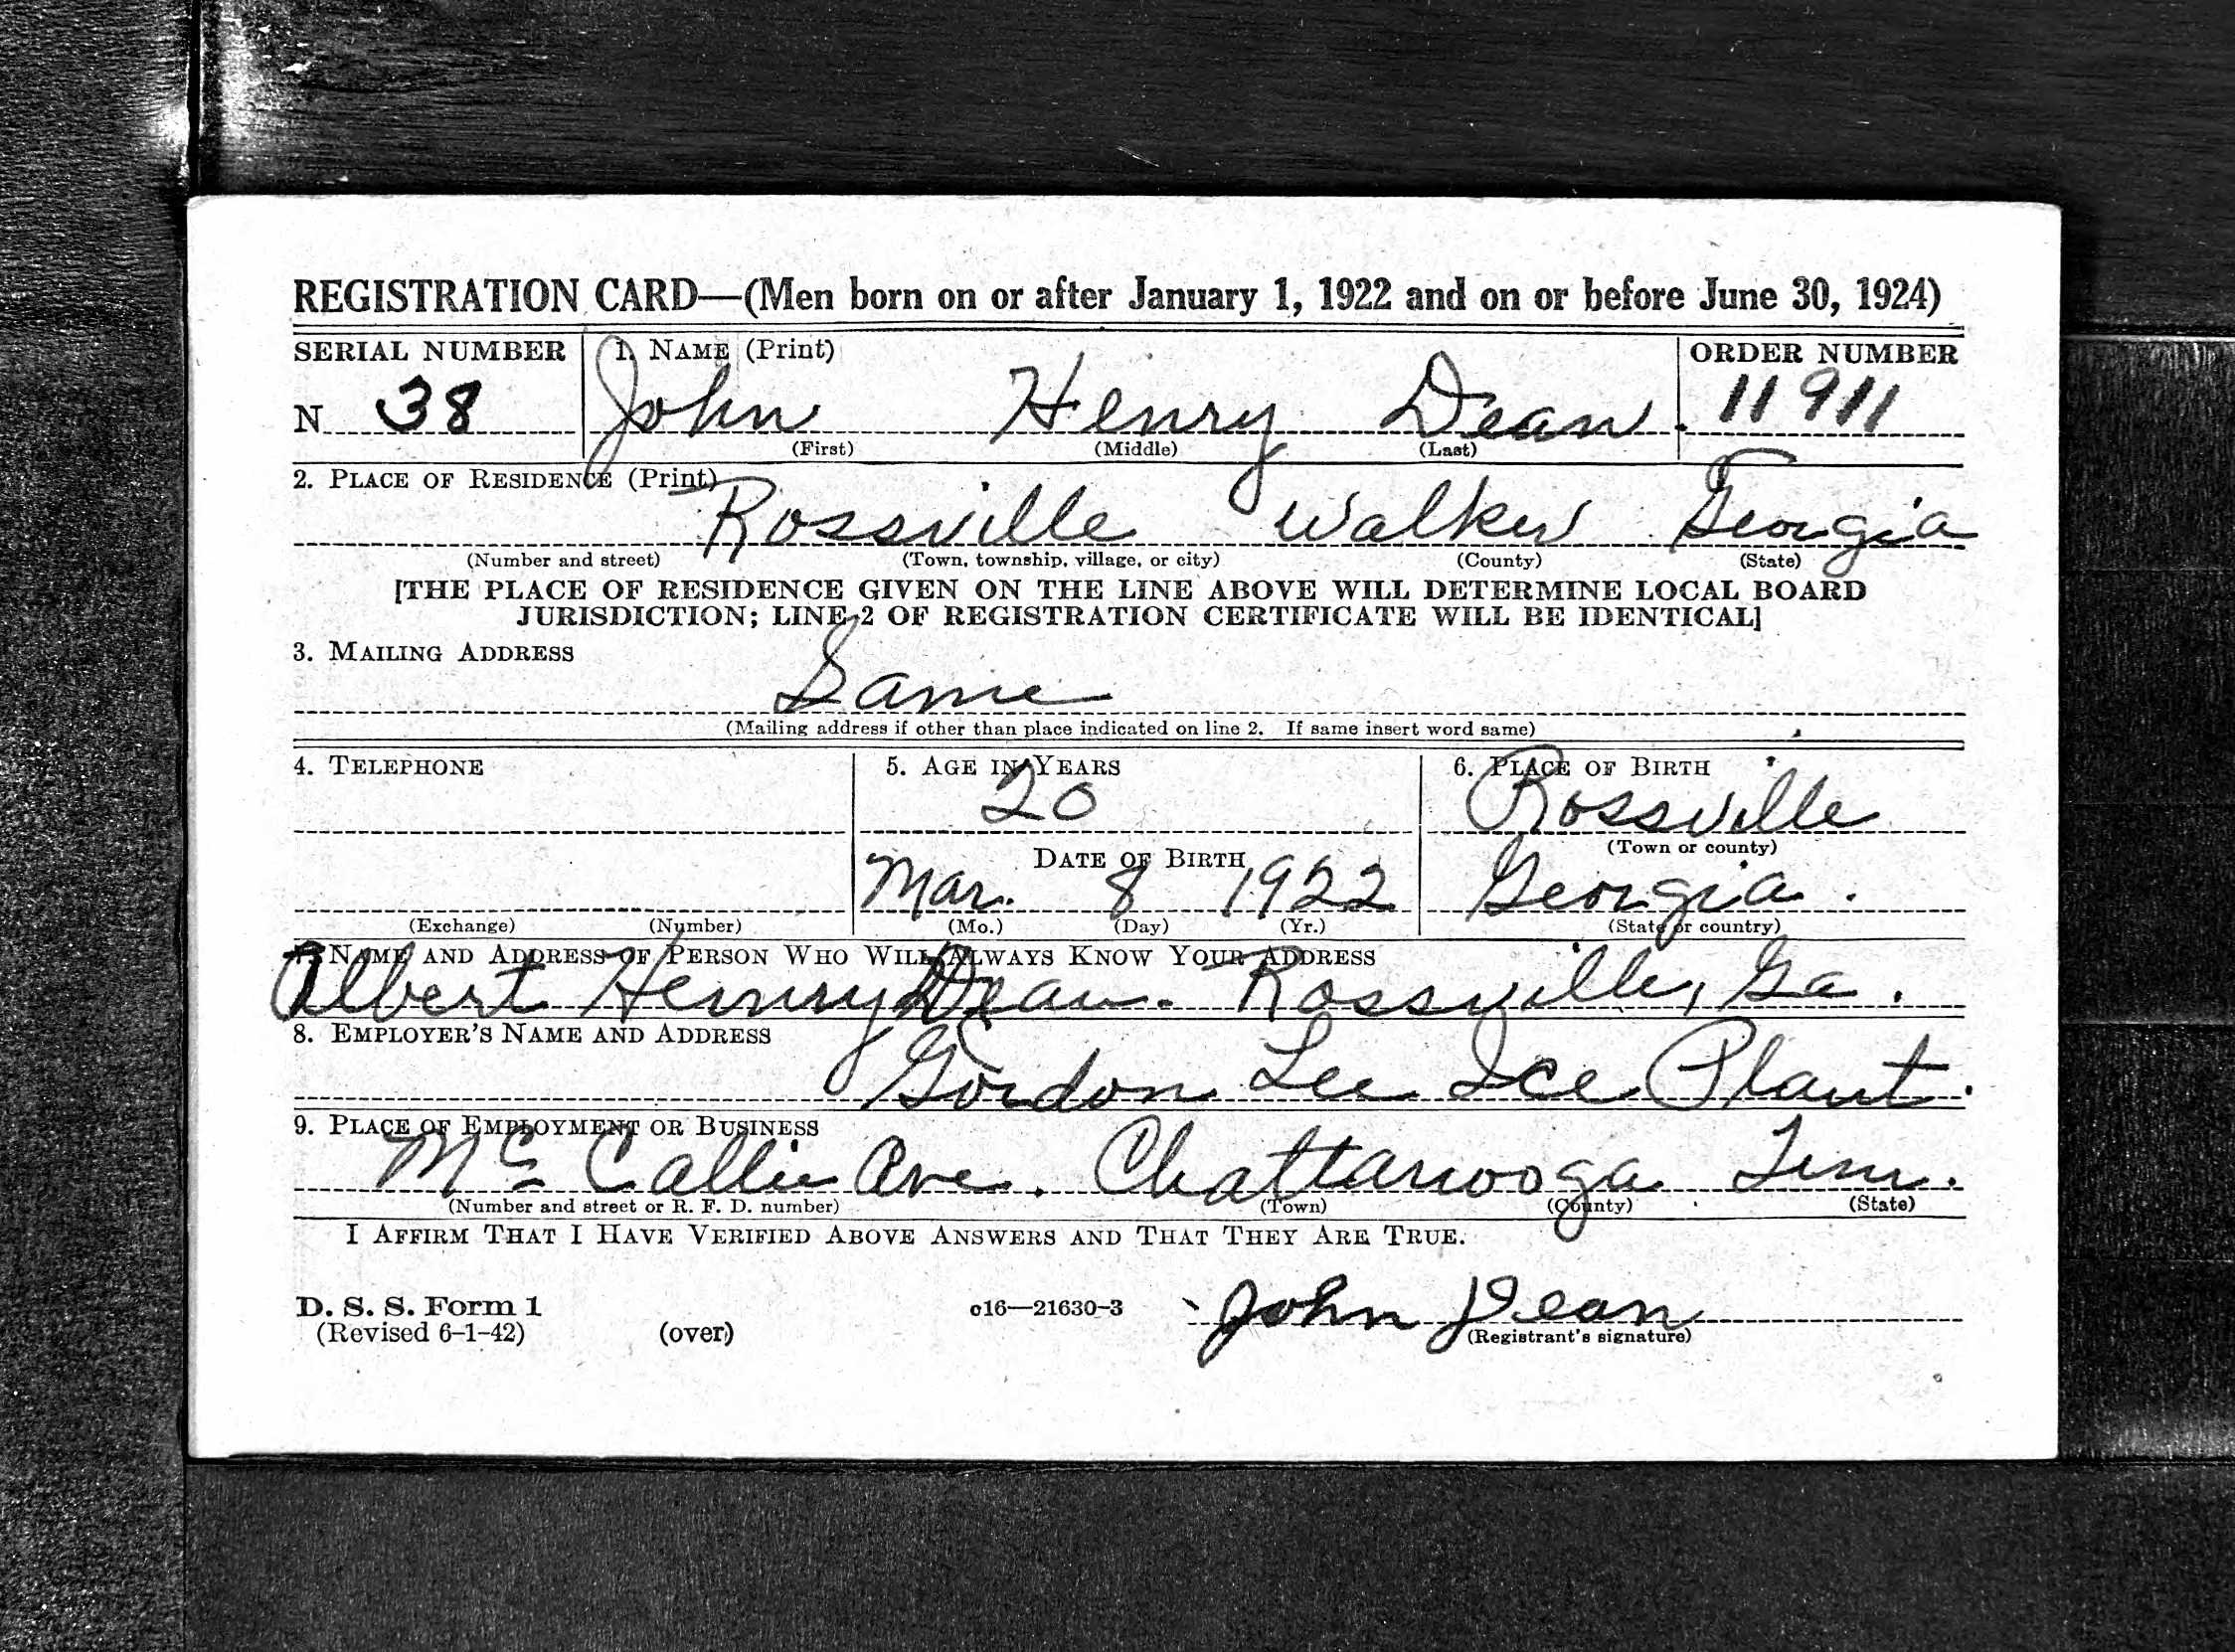 REGISTRATION CARD—(Men born on or after January 1, 1922 and on or before June 30, 1924)
SERIAL NUMBER 1. NAME (Print) ORDER NUMBER
N 38 John Henry Dean. 11911
(First) (Middle) (Last)
2. PLACE OF RESIDENCE (Print)
Rossville Walker Georgia
(Number and street) (Town, township, village, or city) (County) (State)
[THE PLACE OF RESIDENCE GIVEN ON THE LINE ABOVE WILL DETERMINE LOCAL BOARD
JURISDICTION; LINE 2 OF REGISTRATION CERTIFICATE WILL BE IDENTICAL]
3. MAILING ADDRESS
Same
(Mailing address if other than place indicated on line 2. If same insert word same)
4. TELEPHONE 5. AGE IN YEARS 6. PLACE OF BIRTH
20 Rossville
DATE OF BIRTH (Town or county)
Mar. 8 1922 Georgia.
(Exchange) (Number) (Mo.) (Day) (Yr.) (State or country)
7. NAME AND ADDRESS OF PERSON WHO WILL ALWAYS KNOW YOUR ADDRESS
Albert Henry Dean. Rossville, Ga.
8. EMPLOYER'S NAME AND ADDRESS
Gordon Lee Ice Plant.
9. PLACE OF EMPLOYMENT OR BUSINESS
Mc Callie Ave. Chattanooga Tenn.
(Number and street or R. F. D. number) (Town) (County) (State)
I AFFIRM THAT I HAVE VERIFIED ABOVE ANSWERS AND THAT THEY ARE TRUE.
D. S. S. Form 1 c16—21630-3 John Dean
(Revised 6-1-42) (over) (Registrant's signature)